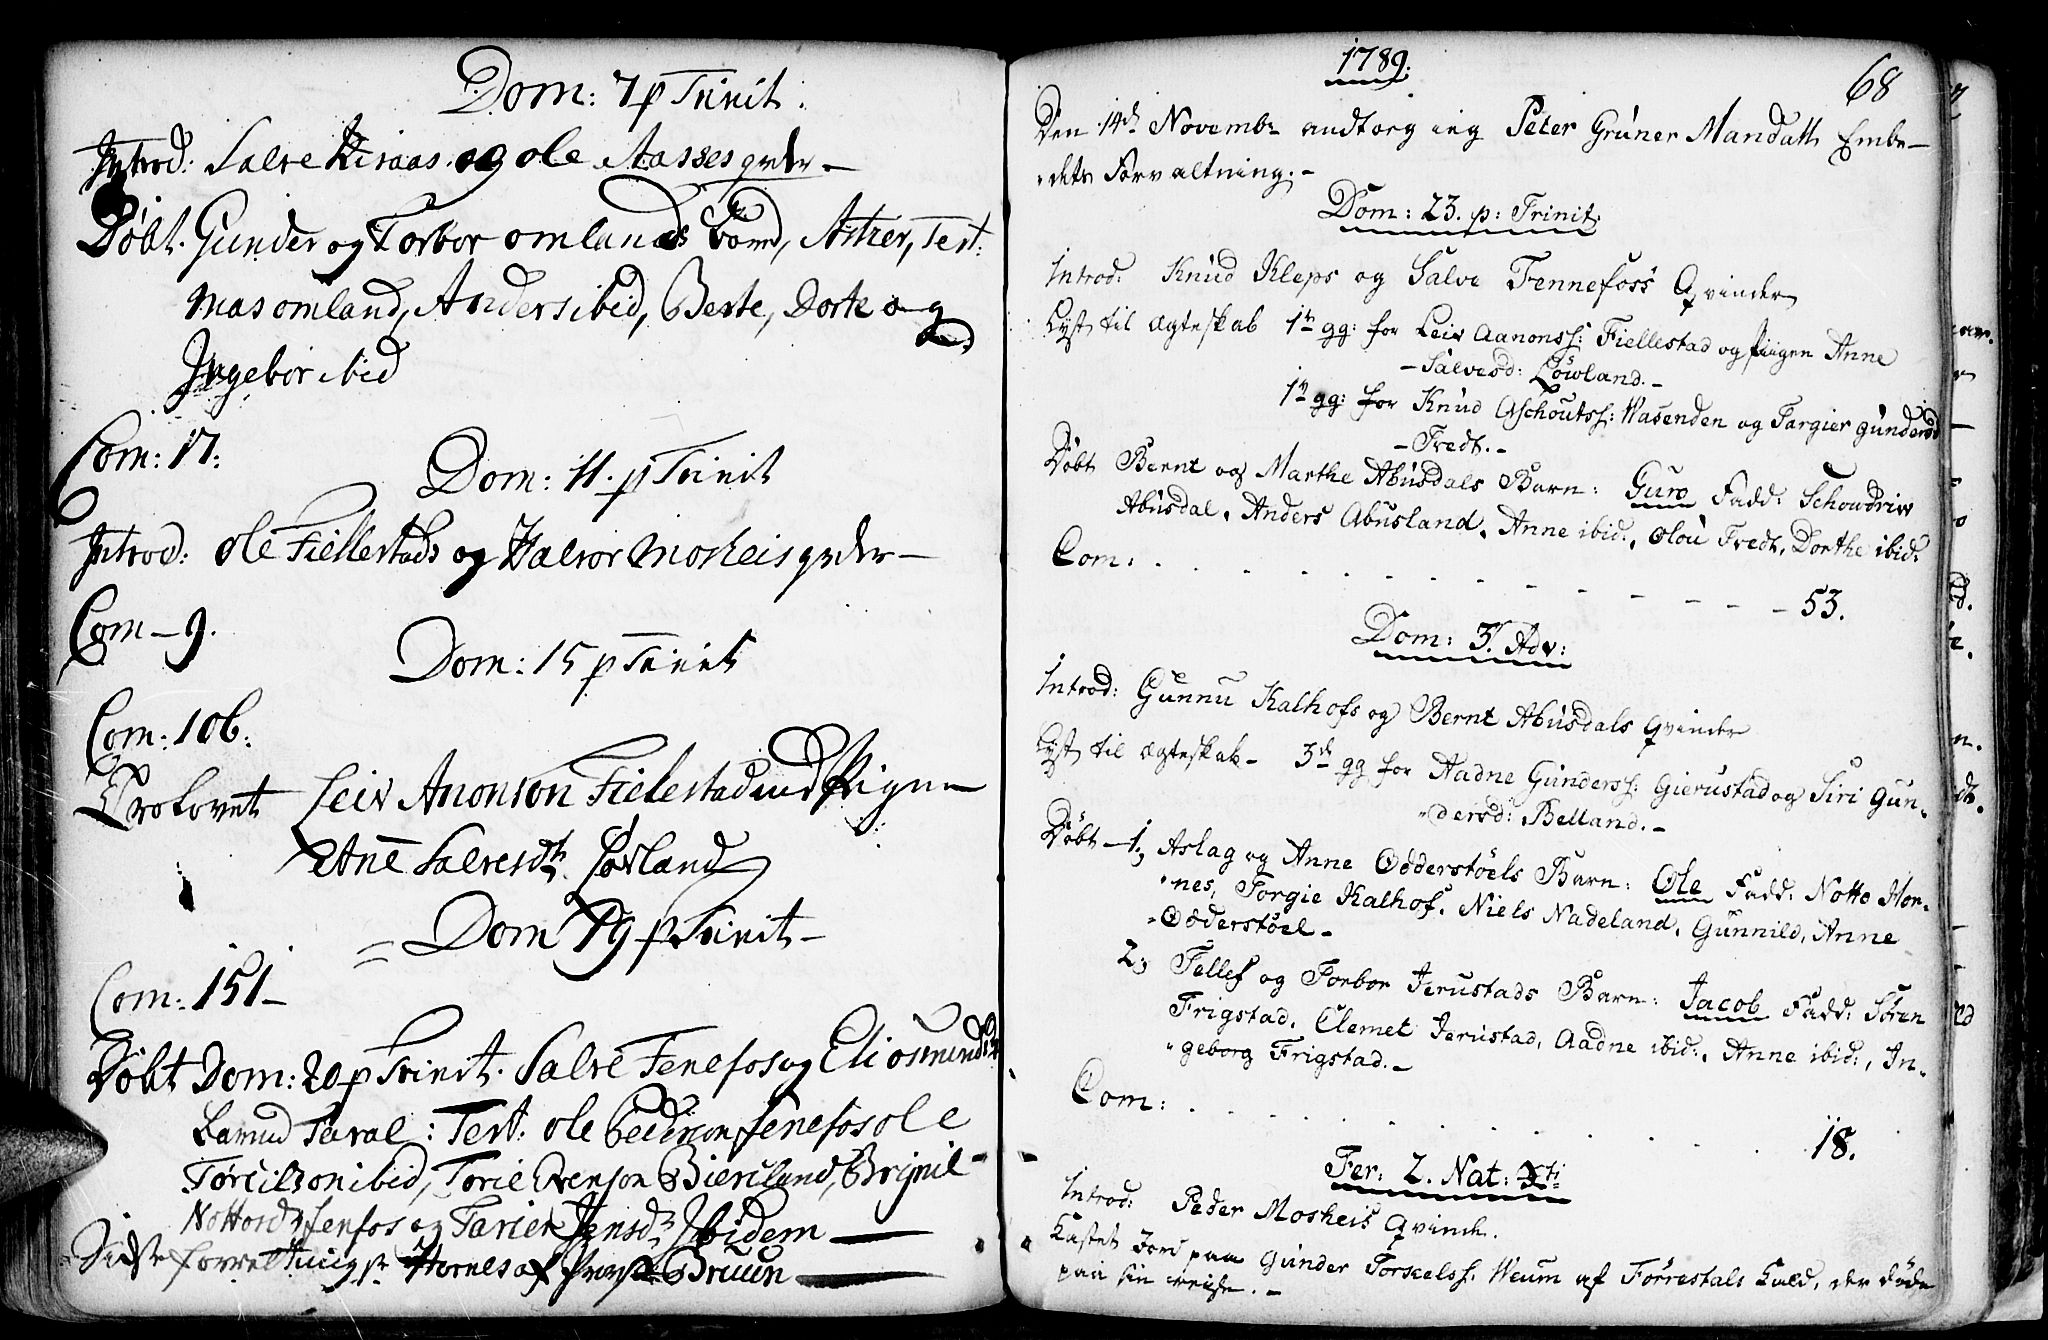 Dom: 7 p Trinit:
Introd: Salve Kiraas og ole Aasses qvder —
Døbt. Gunder og Torbor omlands barn, Astrer, Test:
Mas omland, Anders ibid, Berte, Dorte og
Ingebor ibid
Com: 17:
Dom: 11. p Trinit
Introd: ole Fiellestads og Halvor Moskeis qvder —
Com — 9.
Dom: 15 p Trinit
Com: 106:
Trolovet Leiv Anonson Fielestad med Pigen
Ane Salvesdtr Løvland
Dom 19 p Trinit —
Com: 151 —
Døbt Dom: 20 p Trinit. Salve Fenefos og Eli
barn Tarald: Test: ole Pederson Fenefos ole
Torcilson ibid, Torie Evenson Bierland, Brynil
Nottosdtr Fenfos og Tarier Jensdtr Ibidem —
Sidste forretning Hornes af Provst Bruun —
1789.
68
Den 14de Novembr andtoeg ieg Peter Grüner Mandall Embe—
dets Forvaltning. —
Dom: 23. p: Trinit:
Introd: Knud Kleps og Salve Fennefoss Qvinder
Lyst til Ægteskab 1te gg: for Leiv Aanonss: Fiellestad og Piigen Anne
— Salvesd: Løwland. —
1te gg: for Knud Aschoutss: Wasenden og Targier Gundersd
— Tredt. —
Døbt Bernt og Marthe Abusdals Barn: Guro Fadd:
Abusdal, Anders Abusland, Anne ibid:, Olou Tredt, Dorthe ibid:
Com: . . . . — 53.
Dom: 3. Adv:
Introd: Gunnu Kalhofs og Bernt Abusdals Qvinder
Lyst til Ægteskab — 3de gg for Aadne Gunderss: Gierustad og Siri Gun-
dersd: Belland. —
Døbt — 1, Aslag og Anne Odderstøels Barn: Ole Fadd: Notto Hor-
nes, Torgie Kalhof, Niels Nadeland, Gunnild, Anne
Odderstøel —
2, Tellef og Torbor Jerustads Barn: Jacob Fadd: Søren
Frigstad, Clemet Jerustad, Aadne ibid:, Anne ibid:, In-
geborg Frigstad. —
Com: . . . . 18.
Fer: 2. Nat: Xti
Introd: Peder Moskeis Qvinde.
Kastet Jord paa Gunder Torkelss: Weum af Torrestals Kald, der døde
paa sin reise. —